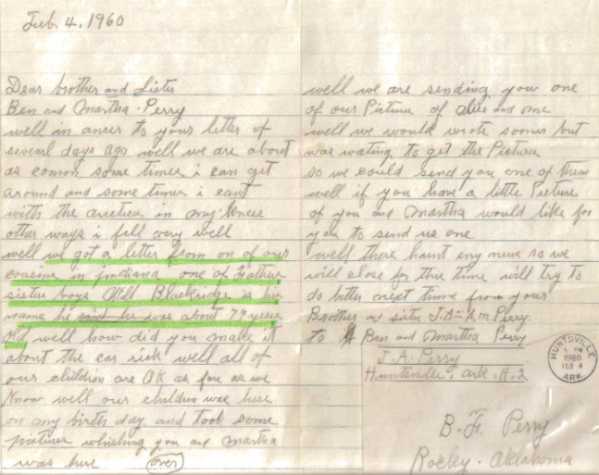 Feb. 4, 1960
Dear brother and Sister
Ben and Martha Perry
well in ancer to your letter of
several days ago well we are about
as comon some times i can get
around and some times i cant
with the in my knees
other ways i fell very well
well we got a letter from on of our
cousins in Indiana one of Fathers
sisters boys Will is his
name he said he was about 79 years
old well how did you make it
about the car sick well all of
our children are OK as far as we
Know well our children was here
on my birth day and took some
pictures whishing you and Martha
was here (over)
well we are sending you one
of our Picture of and me
well we would wrote sooner but
was wating to get the Picture
so we could send you one of them
well if you have a little Picture
of you and Martha would like for
you to send us one
well there haint eny news so we
will close for this time will try to
do better next time from your
Brother and sister J.A. Perry
to Ben and Martha Perry
J. A. Perry
Huntsville, Ark. R. 2
HUNTSVILLE
PM
1960
FEB 4
ARK.
B. F. Perry
Oklahoma